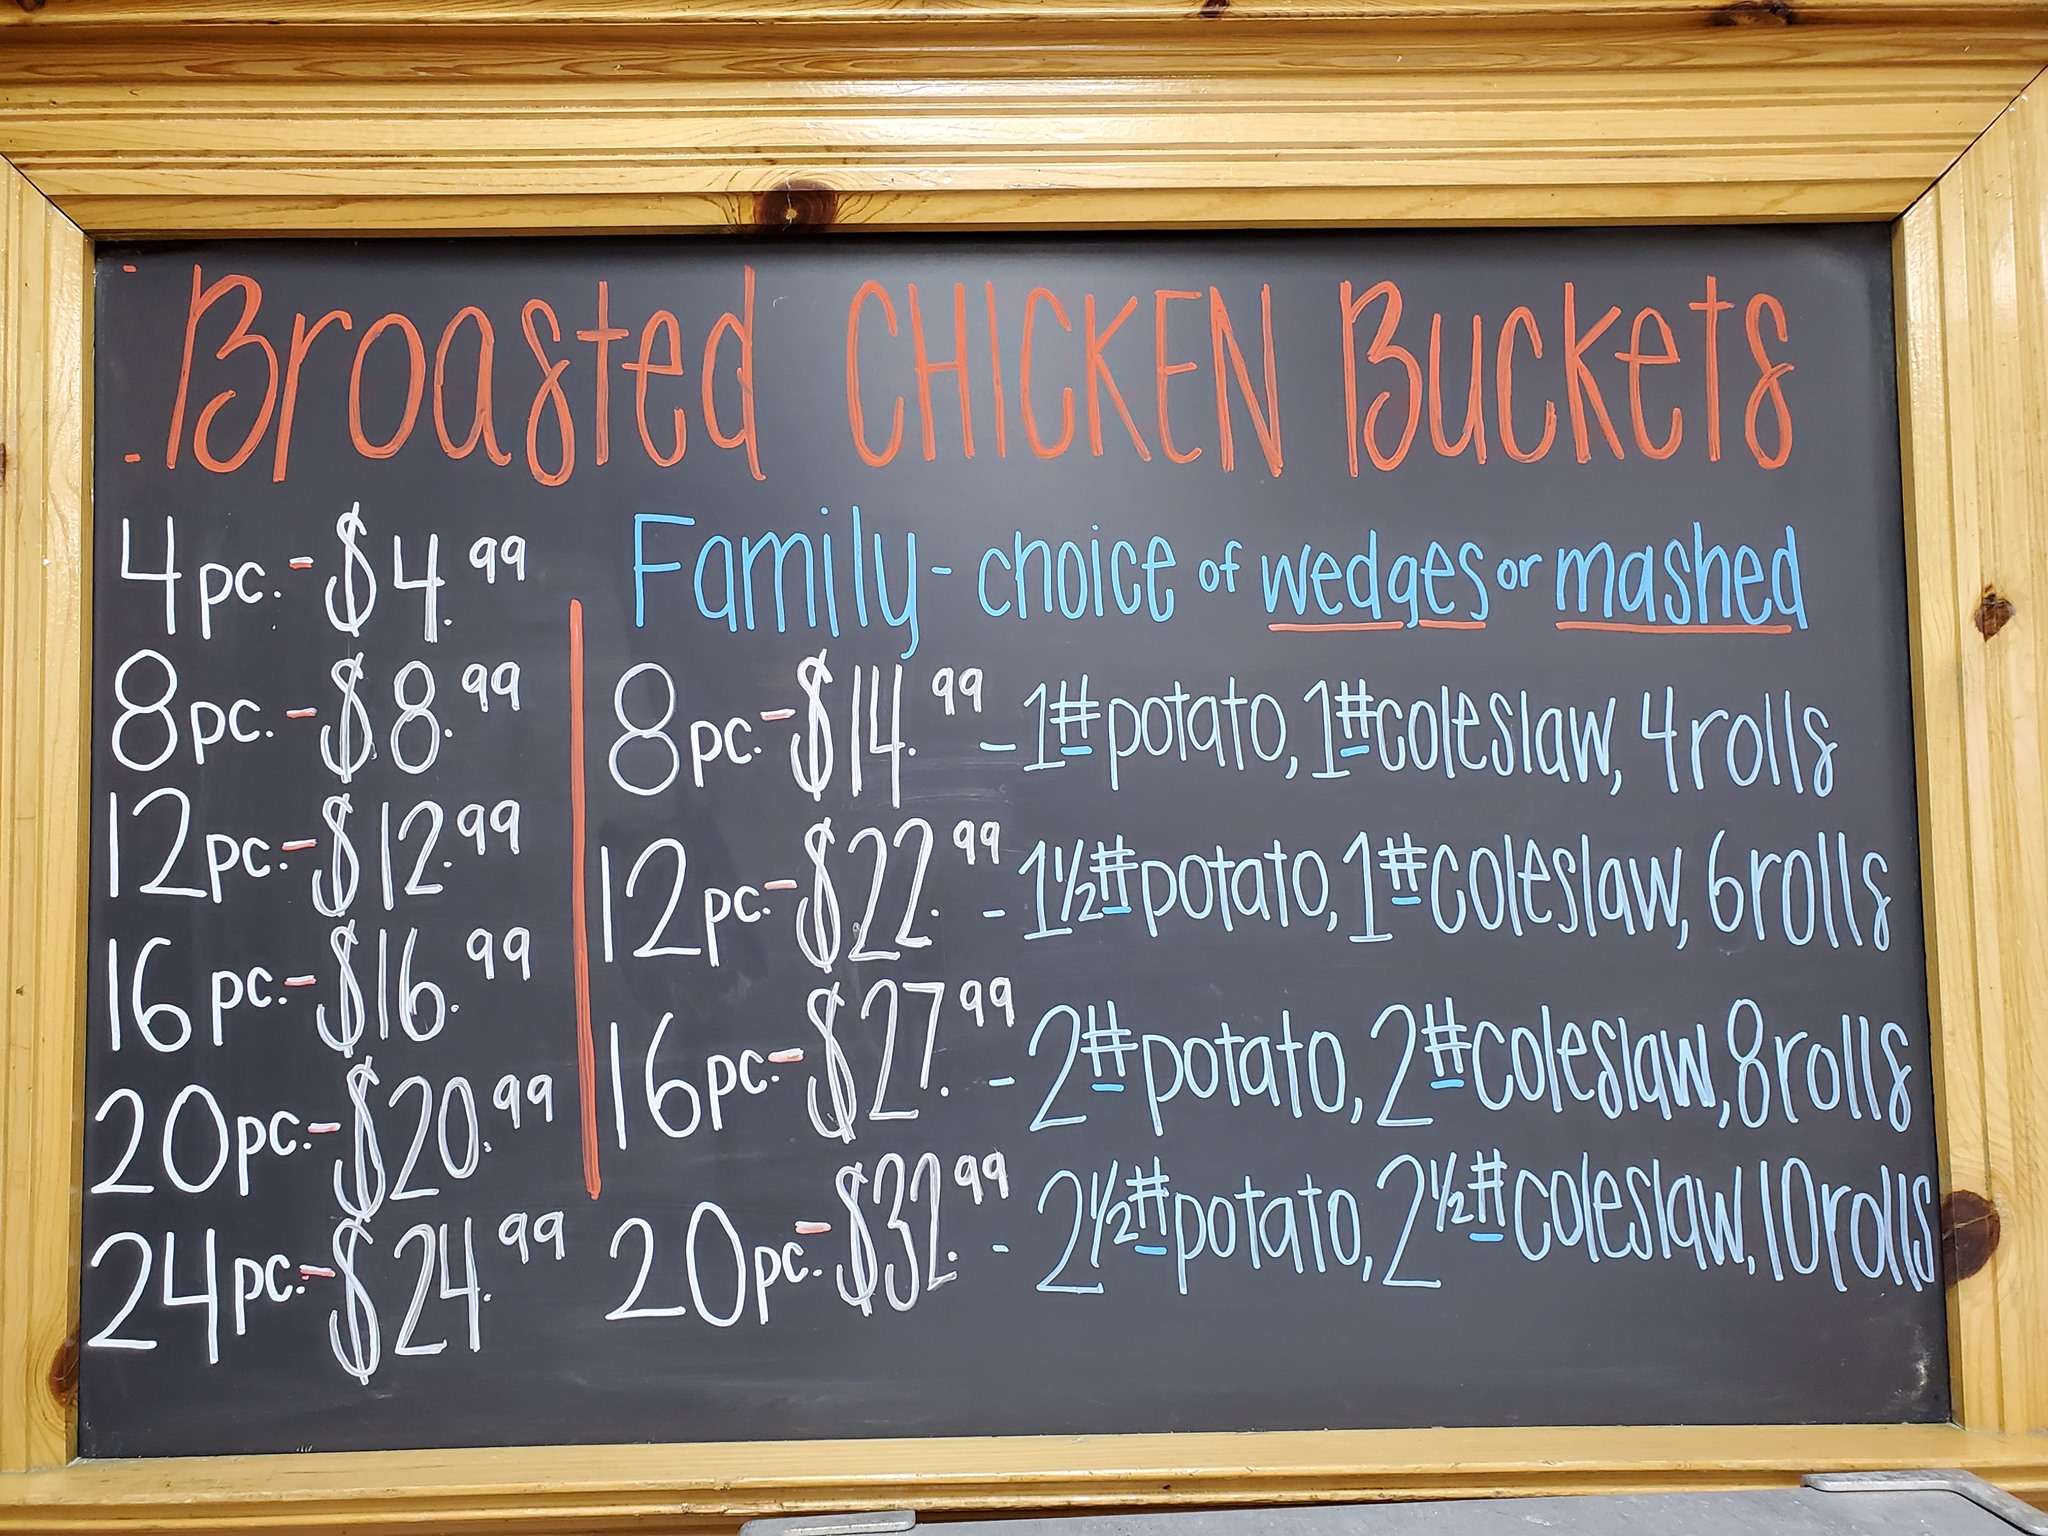 Broasted CHICKEN Buckets
4 pc. - $4.99
8 pc. - $8.99
12 pc. - $12.99
16 pc. - $16.99
20 pc. - $20.99
24 pc. - $24.99
Family - choice of wedges or mashed
8 pc. - $14.99 - 1# potato, 1# coleslaw, 4 rolls
12 pc. - $22.99 - 1½# potato, 1# coleslaw, 6 rolls
16 pc. - $27.99 - 2# potato, 2# coleslaw, 8 rolls
20 pc. - $32.99 - 2½# potato, 2½# coleslaw, 10 rolls